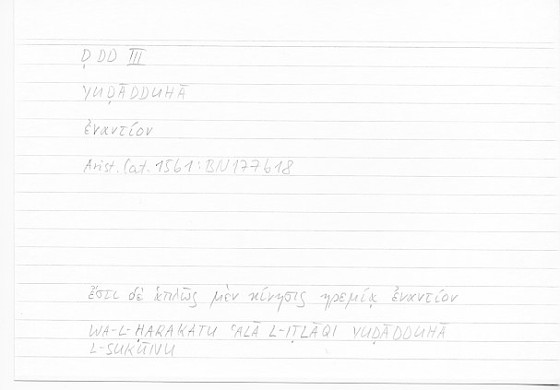 Ḍ DD III
YUḌĀDDUHĀ
ἐναντίον
Arist. Cat. 15b1 : BN177b18
ἔστι δὲ ἁπλῶς μὲν κίνησις ἠρεμίᾳ ἐναντίον
WA-L-ḤARAKATU ʿALĀ L-IṬLĀQI YUḌĀDDUHĀ
L-SUKŪNU